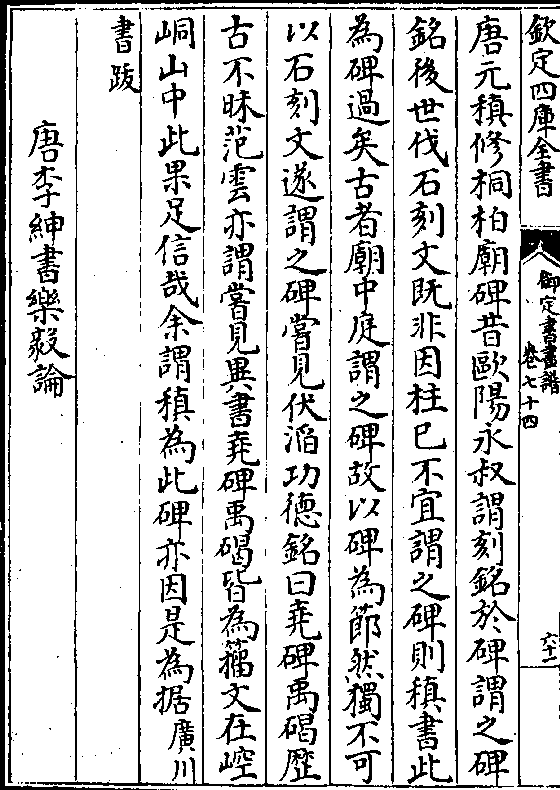 欽定四庫全書
御定書畫譜
卷七十四
六十二
唐元稹修桐柏廟碑昔歐陽永叔謂刻銘於碑謂之碑
銘後世伐石刻文既非因柱已不宜謂之碑則稹書此
為碑過矣古者廟中庭謂之碑故以碑為節然獨不可
以石刻文遂謂之碑嘗見伏滔功德銘曰堯碑禹碣歴
古不昧范雲亦謂嘗見異書堯碑禹碣皆為籀文在崆
峒山中此果足信哉余謂稹為此碑亦因是為据廣川
書跋
唐李紳書樂毅論